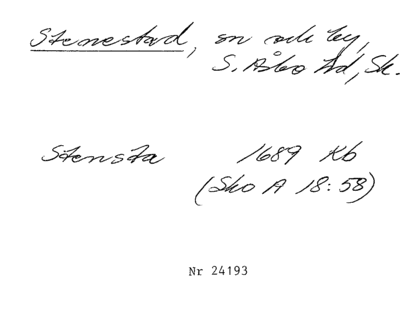 Stenestad, sn och by,
S. Åsbo hd, Sk.
Stensta 1689 Kb
(Sko A 18:58)
Nr 24193